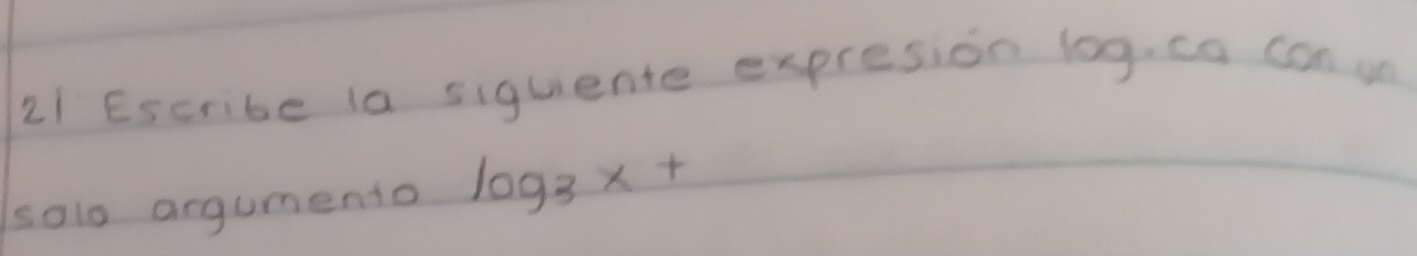 21 Escribe la siguiente expresión log.ca con un
solo argumento log₃ x +